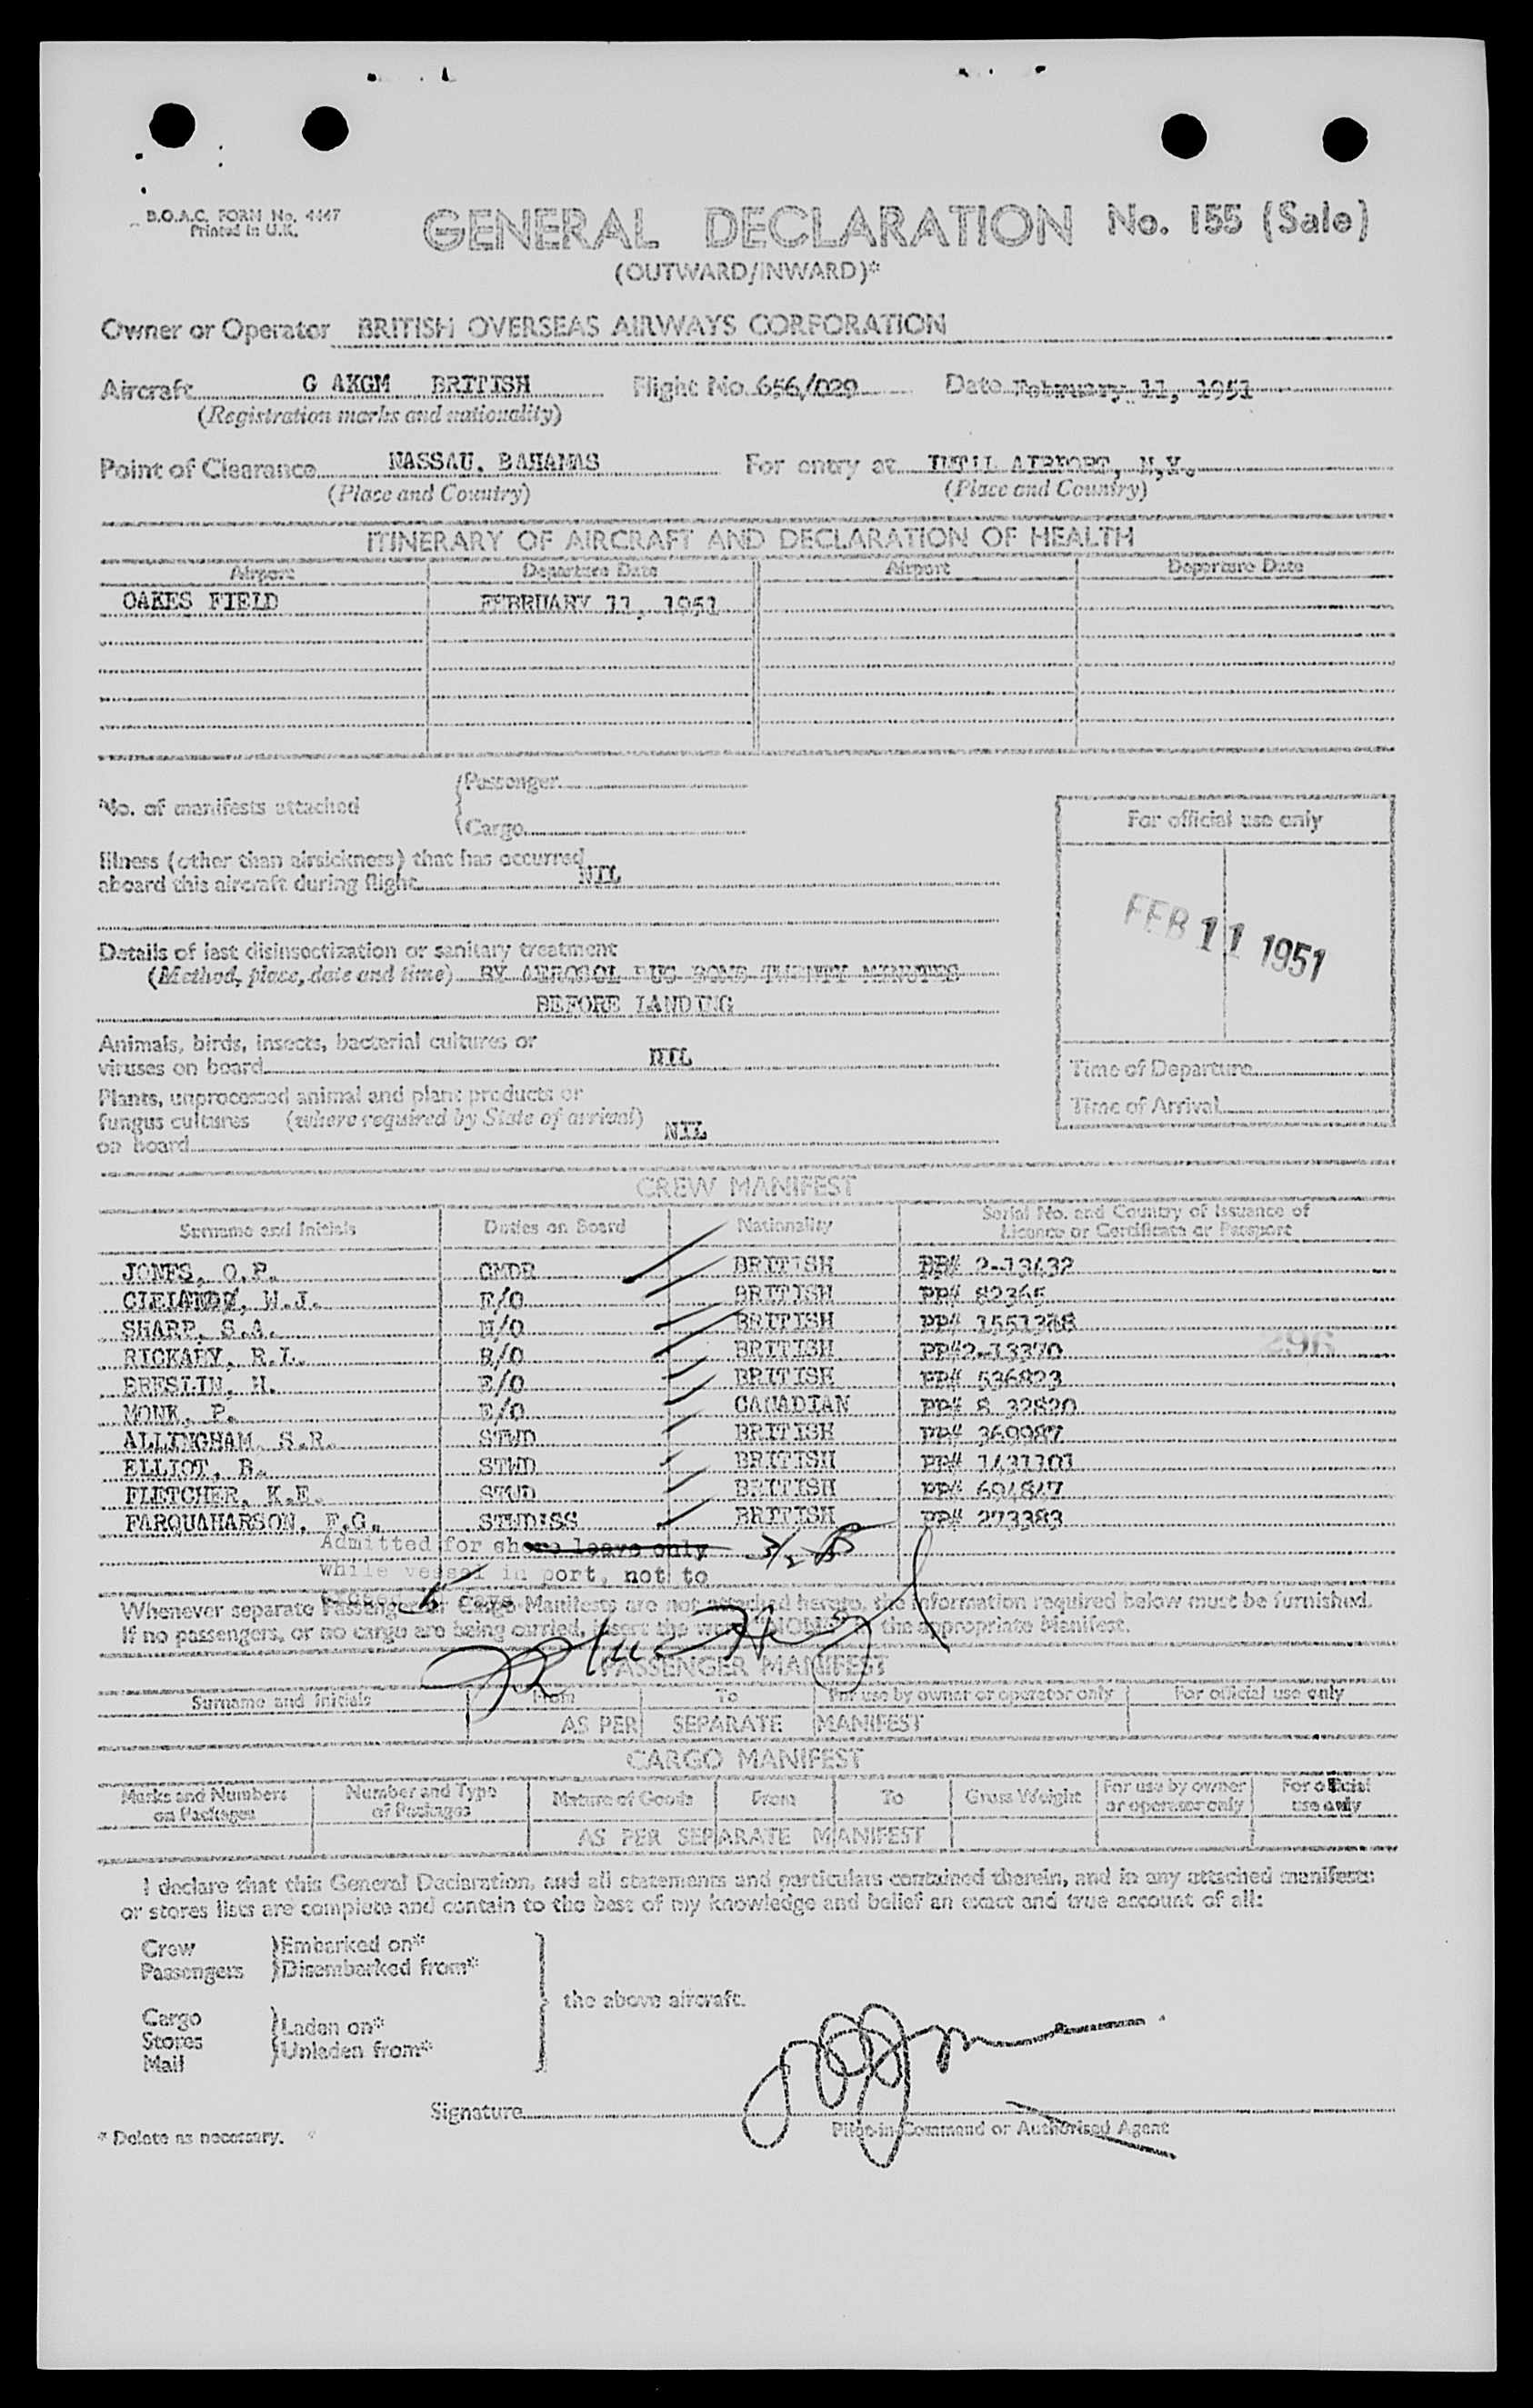 B.O.A.C. FORM No. 4447
Printed in U.K.
GENERAL DECLARATION No. 155 (Sale)
(OUTWARD/INWARD)*
Owner or Operator BRITISH OVERSEAS AIRWAYS CORPORATION
Aircraft G AKGM BRITISH Flight No. 656/029 Date February 11, 1951
(Registration marks and nationality)
Point of Clearance NASSAU. BAHAMAS For entry at INT'L AIRPORT, N,Y.
(Place and Country) (Place and Country)
ITINERARY OF AIRCRAFT AND DECLARATION OF HEALTH
Airport Departure Date Airport Departure Date
OAKES FIELD FEBRUARY 11, 1951
No. of manifests attached
Passenger
Cargo
Illness (other than airsickness) that has occurred
aboard this aircraft during flight NIL
For official use only
FEB 11 1951
Details of last disinsectization or sanitary treatment
(Method, place, date and time) BY AEROSOL BUG BOMB TWENTY MINUTES
BEFORE LANDING
Animals, birds, insects, bacterial cultures or
viruses on board NIL
Time of Departure
Plants, unprocessed animal and plant products or
fungus cultures (where required by State of arrival)
on board NIL
Time of Arrival
CREW MANIFEST
Surname and Initials Duties on Board Nationality Serial No. and Country of Issuance of
Licence or Certificate or Passport
JONES, O.P. CMDR BRITISH PP# 2-13432
W.J. F/O BRITISH PP# 82365
SHARP, S.A. N/O BRITISH PP#
RICKABY, R.L. R/O BRITISH PP#2-13370
296
BRESLIN, H. E/O BRITISH PP# 536823
MONK, P. E/O CANADIAN PP# 8 32820
ALLINGHAM, S.R. STWD BRITISH PP# 369987
ELLIOT, B. STWD BRITISH PP# 1431101
FLETCHER, K.E. STWD BRITISH PP# 694847
FARQUAHARSON, F.G. STWD'SS BRITISH PP# 273383
Admitted for shore leave only
while vessel in port, not to
Whenever separate Passenger or Cargo Manifests are not attached hereto, the information required below must be furnished.
If no passengers, or no cargo are being carried, insert the word "NONE" in the appropriate Manifest.
PASSENGER MANIFEST
Surname and Initials From To For use by owner or operator only For official use only
AS PER SEPARATE MANIFEST
CARGO MANIFEST
Marks and Numbers on Packages Number and Type of Packages Nature of Goods From To Gross Weight For use by owner or operator only For official use only
AS PER SEPARATE MANIFEST
I declare that this General Declaration, and all statements and particulars contained therein, and in any attached manifests
or stores lists are complete and contain to the best of my knowledge and belief an exact and true account of all:
Crew Embarked on*
Passengers Disembarked from*
the above aircraft.
Cargo Laden on*
Stores Unladen from*
Mail
Signature
Pilot-in-Command or Authorised Agent
* Delete as necessary.